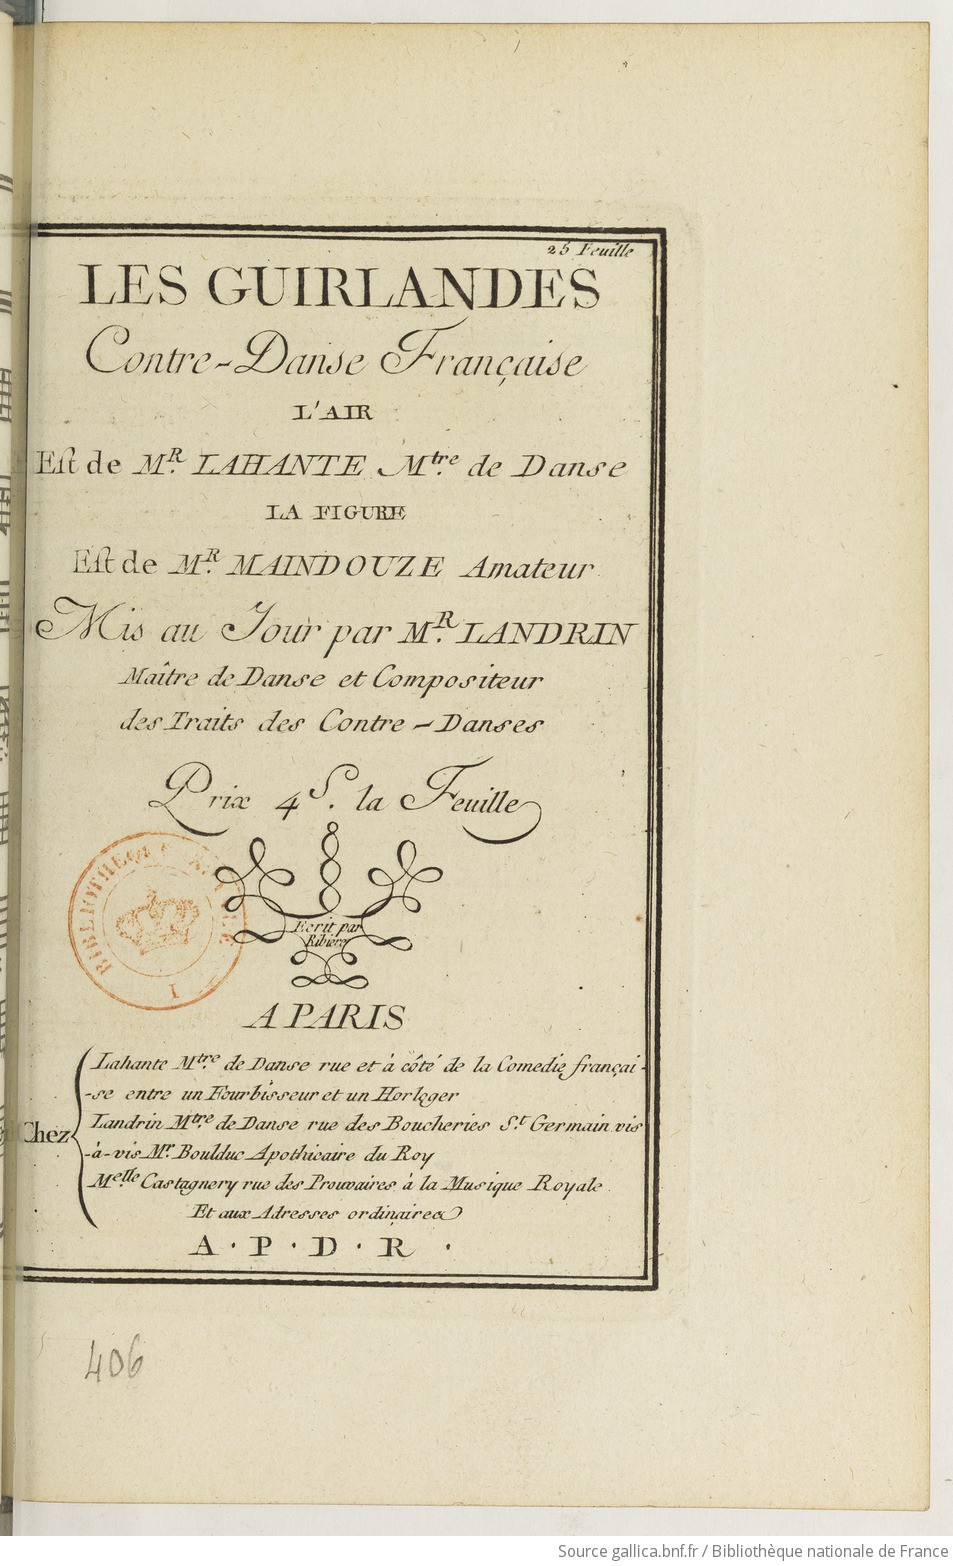 25 Feuille
LES GUIRLANDES
Contre-Danse Française
L'AIR
Est de M.R LAHANTE M.tre de Danse
LA FIGURE
Est de M.R MAINDOUZE Amateur
Mis au Jour par M.R LANDRIN
Maître de Danse et Compositeur
des Traits des Contre-Danses
Prix 4 S. la Feuille
Ecrit par
Ribiere
BIBLIOTHECA REGIAE
I
A PARIS
Chez
Lahante M.tre de Danse rue et à côté de la Comedie françai-
-se entre un Fourbisseur et un Horloger
Landrin M.tre de Danse rue des Boucheries S.t Germain vis
-à-vis M.r Boulduc Apothicaire du Roy
M.elle Castagnery rue des Prouvaires à la Musique Royale
Et aux Adresses ordinaires
A . P . D . R .
406
Source gallica.bnf.fr / Bibliothèque nationale de France